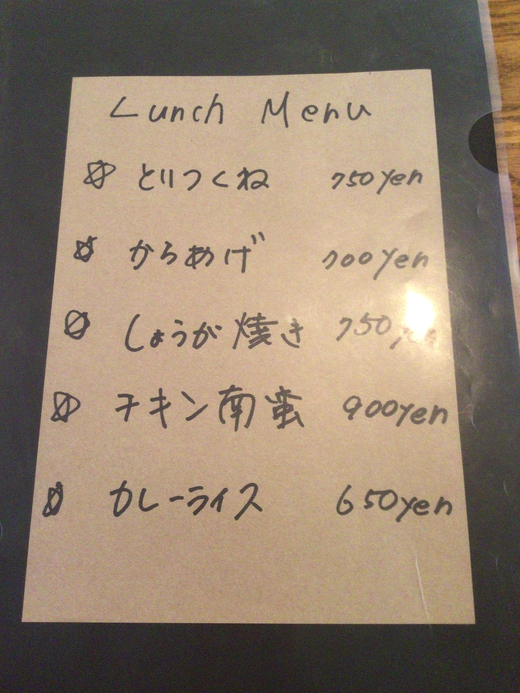 Lunch Menu
☆ とりつくね 750yen
☆ からあげ 700yen
☆ しょうが焼き 750yen
☆ チキン南蛮 900yen
☆ カレーライス 650yen